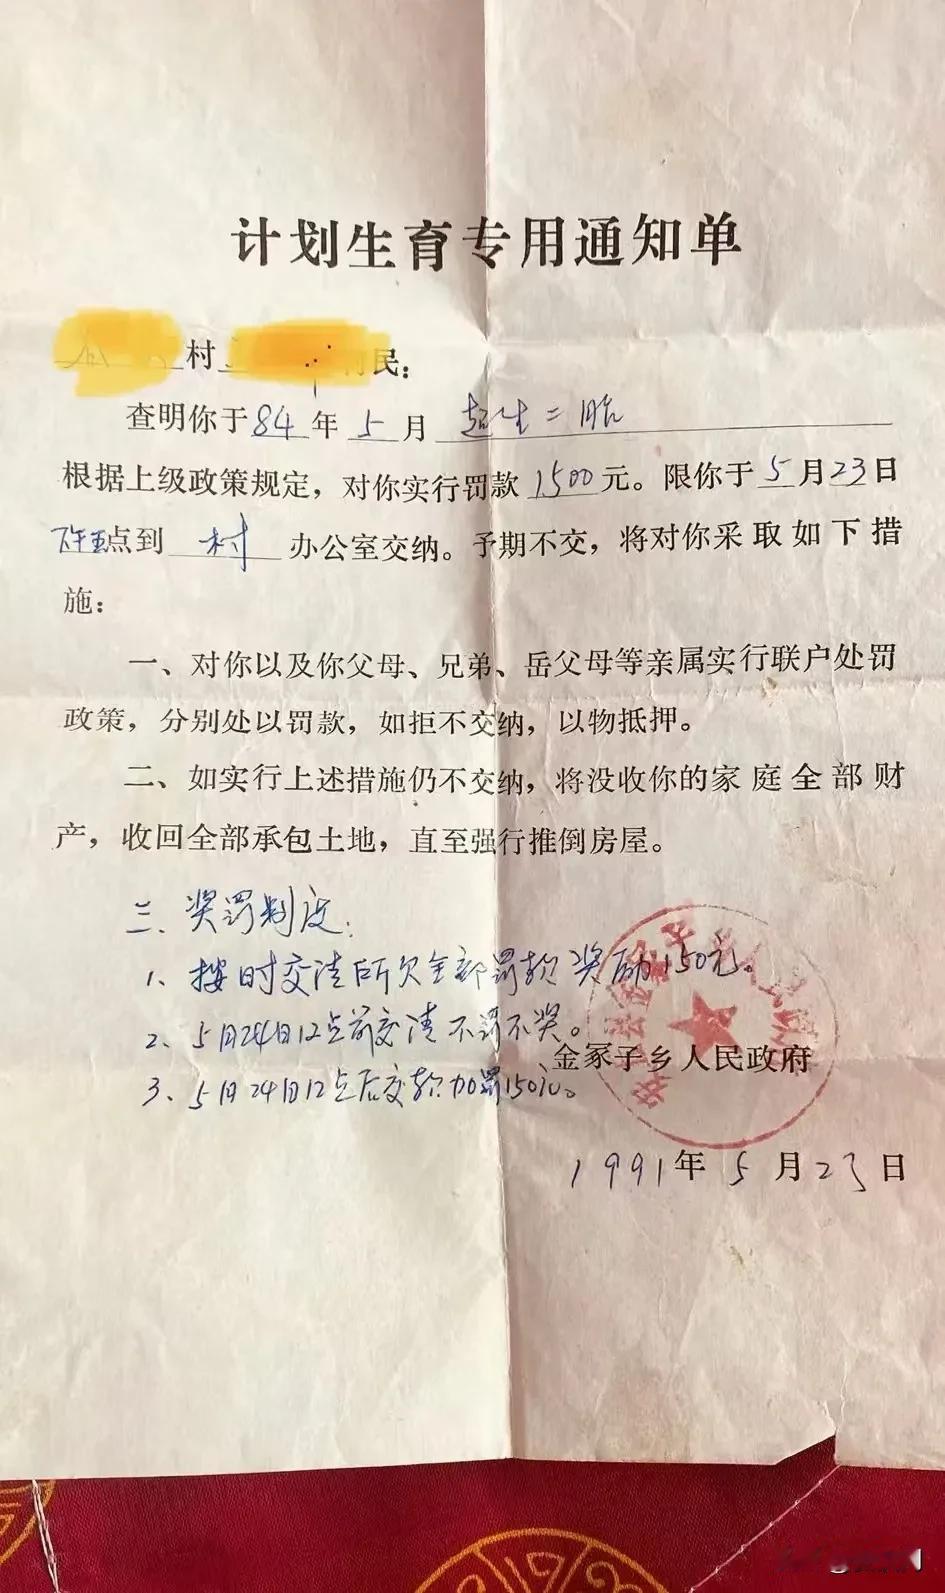 计划生育专用通知单
村 民：
查明你于84年5月超生二胎
根据上级政策规定，对你实行罚款1500元。限你于5月23日
下午五点到村办公室交纳。予期不交，将对你采取如下措
施：
一、对你以及你父母、兄弟、岳父母等亲属实行联户处罚
政策，分别处以罚款，如拒不交纳，以物抵押。
二、如实行上述措施仍不交纳，将没收你的家庭全部财
产，收回全部承包土地，直至强行推倒房屋。
三、奖罚制度：
1、按时交清所欠全部罚款奖励150元。
2、5月24日12点前交清不罚不奖。
金冢子乡人民政府
3、5月24日12点后交款加罚150元。
1991年5月23日